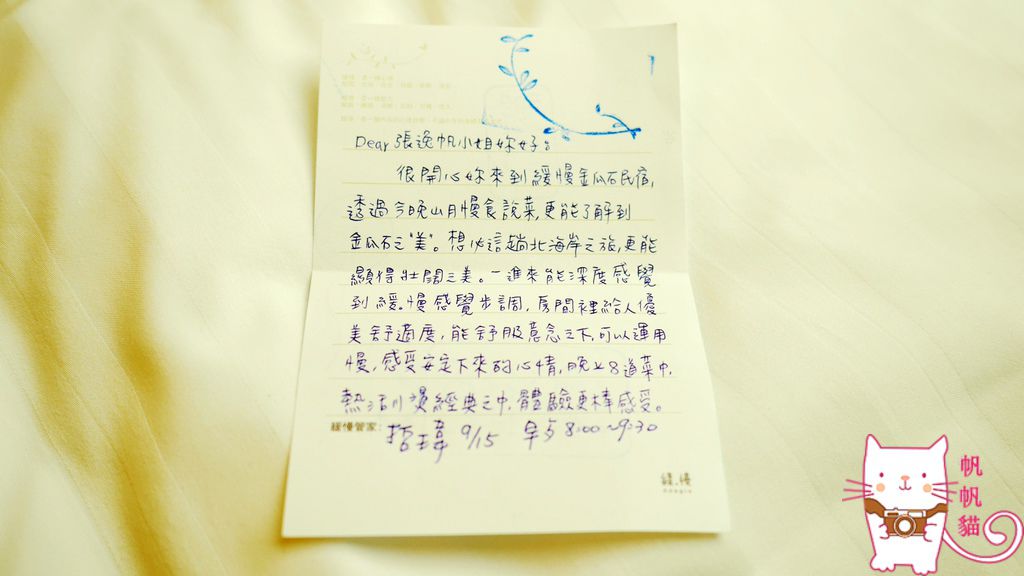 Dear 張逸帆小姐妳好：
很開心妳來到緩慢金瓜石民宿，
透過今晚山月慢食說菜，更能了解到
金瓜石之"美"。想必這趟北海岸之旅，更能
顯得壯闊之美。一進來能深度感覺
到緩。慢感覺步調，房間裡給人優
美舒適度，能舒服意念之下，可以運用
慢，感受安定下來的心情，晚上8道菜中，
熱活川燙經典之中，體驗更棒感受。
緩慢管家： 9/15 早 8:00~9:30
緩。慢
帆帆貓